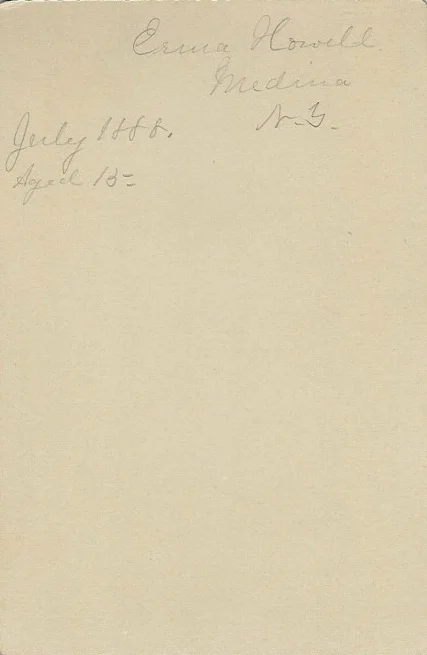 Erma Howell
Medina
N.Y.
July 1888.
Aged 15